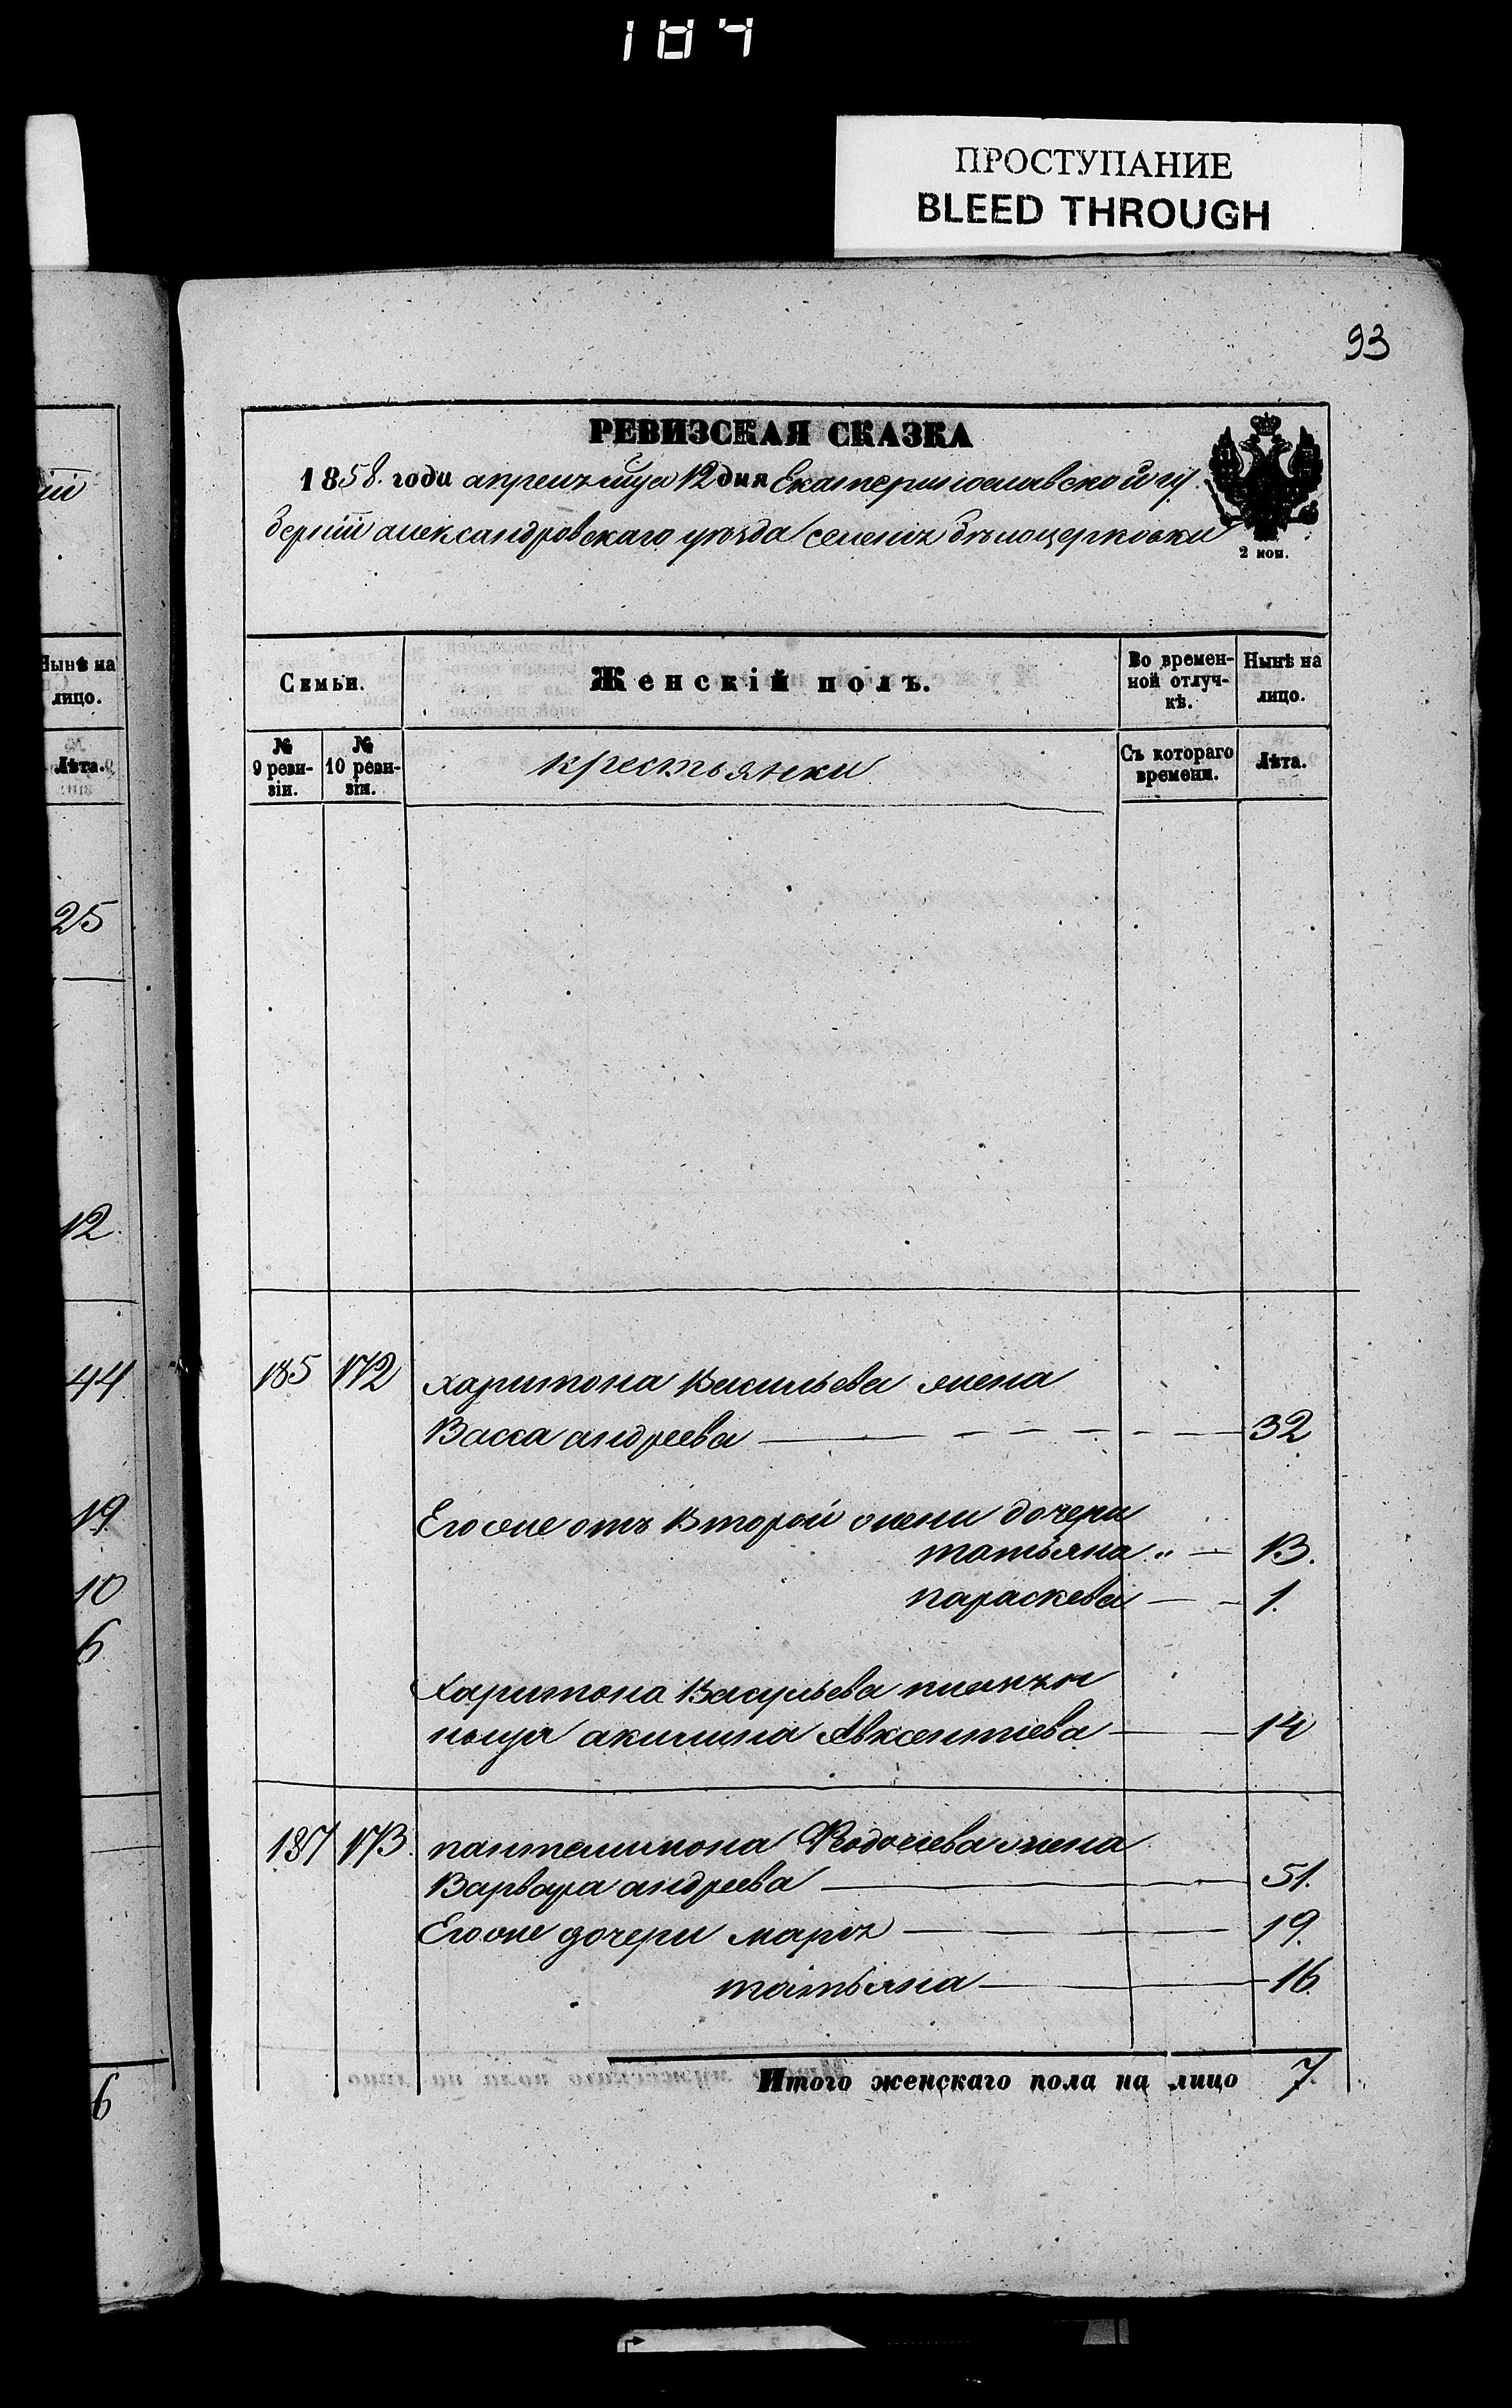 184
ПРОСТУПАНИЕ
BLEED THROUGH
93
РЕВИЗСКАЯ СКАЗКА
1858. года апреля мца 12 дня Екатеринославской гу
берніи александровскаго уѣзда селенія бѣлоцерковки
2 коп.
Семьи.
Женскій полъ.
Во времен-
ной отлуч-
кѣ.
Нынѣ на
лицо.
№
9 реви-
зіи.
№
10 реви-
зіи.
крестьянки
Съ котораго
времени.
Лѣта.
185 172 харитона Васильева жена
Васса андреева 32
Егоже отъ Второй жены дочери
татьяна 13.
параскева 1.
Харитона Васильева племян
ница акилина Авксентіева 14
187 173. пантелимона Федосіева жена
Варвара андреева 51.
Егоже дочери марія 19.
татьяна 16
Итого женскаго пола на лицо 7
Нынѣ на
лицо.
Лѣта.
25
12.
44
19.
10
6
6